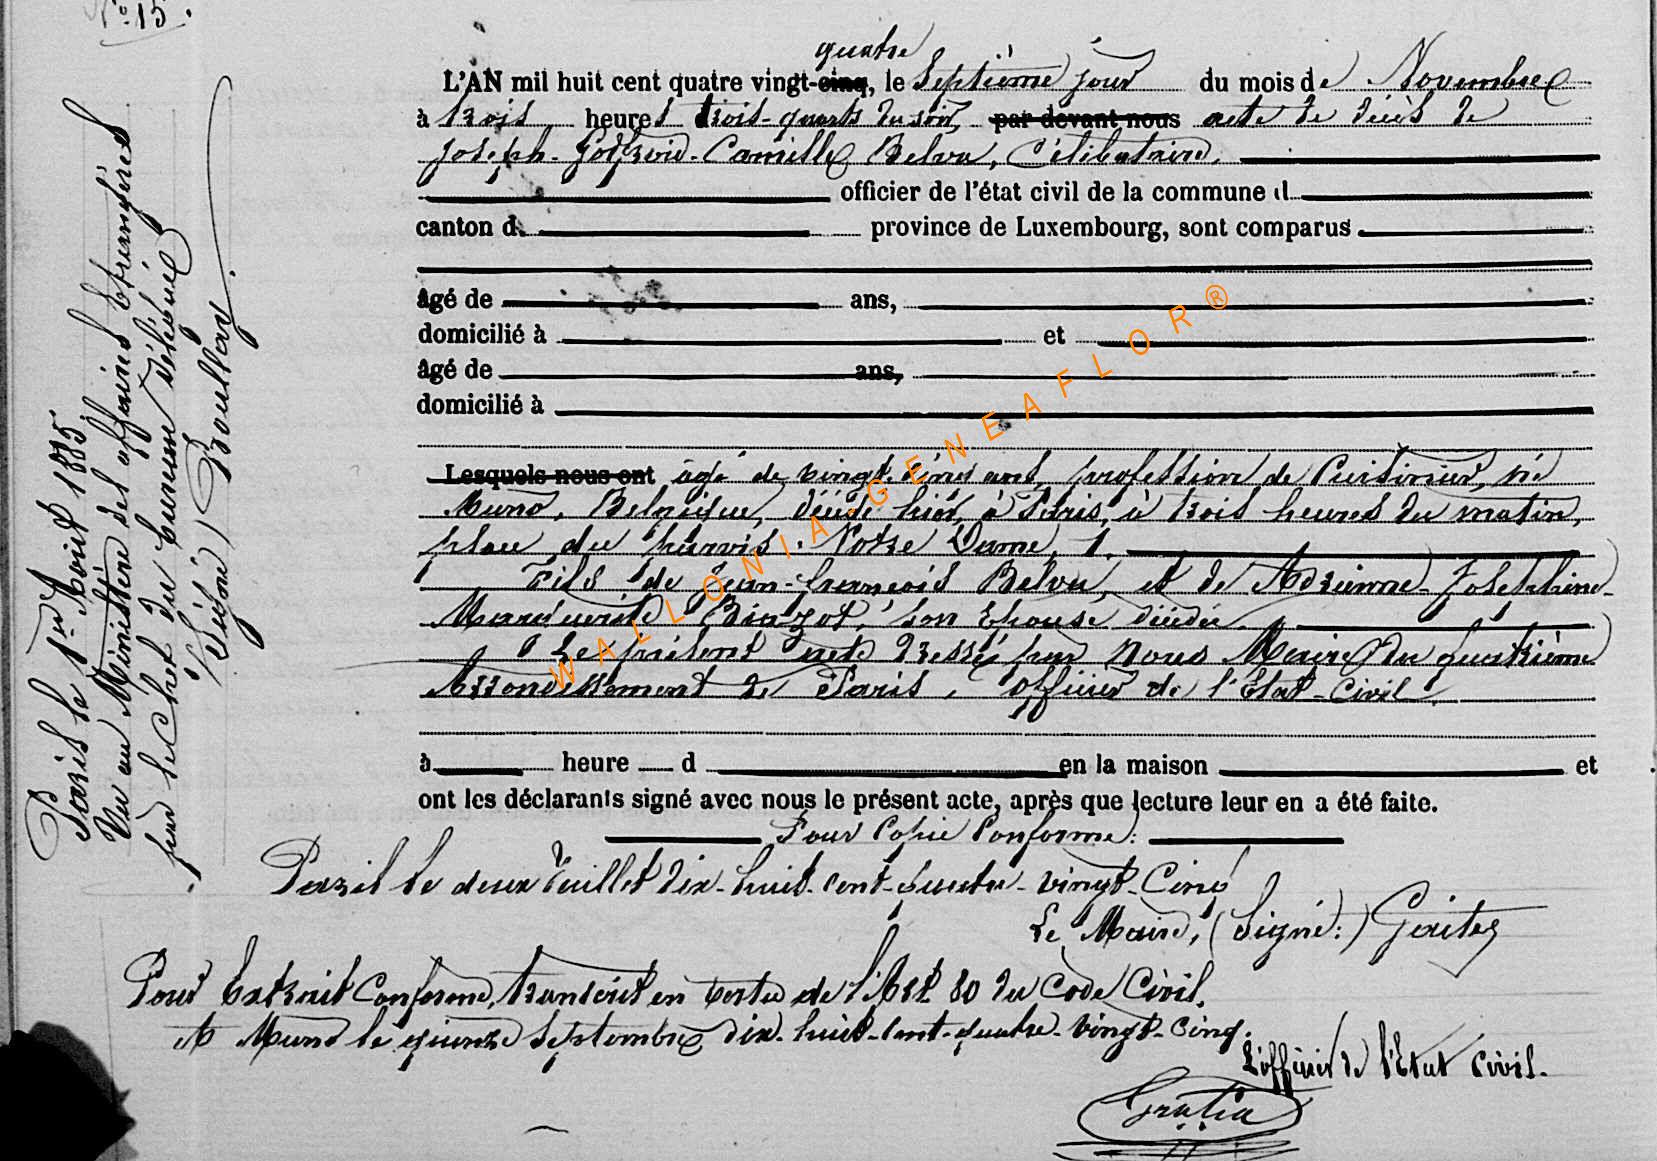 N° 15.
quatre
L'AN mil huit cent quatre vingt-cinq, le Septième jour du mois de Novembre
à trois heures trois-quarts du soir, par devant nous acte de décès de
Joseph-Godfroid-Camille Belva, Célibataire,
officier de l'état civil de la commune d
canton d province de Luxembourg, sont comparus
âgé de ans,
domicilié à et
âgé de ans,
domicilié à
Lesquels nous ont âgé de vingt-cinq ans, profession de Cuisinier, né
Muno, Belgique, décédé hier, à Paris, à trois heures du matin,
place du parvis Notre Dame, 1.
Fils de Jean-François Belva, et de Adrienne-Josephine-
Marguerite son Epouse décédée.
Le présent acte dressé par nous Maire du quatrième
Arrondissement de Paris, officier de l'Etat-Civil.
à heure d en la maison et
ont les déclarants signé avec nous le présent acte, après que lecture leur en a été faite.
Pour Copie Conforme:
Paris le deux Juillet dix-huit-cent-quatre-vingt-Cinq
Le Maire, (Signé:)
Pour Extrait Conforme, transcrit en vertu de l'Art. 80 du Code Civil,
A Muno le quinze Septembre dix-huit-cent-quatre-vingt-cinq.
L'officier de l'Etat Civil.
Gratia
Paris le 1er Août 1885
Vu au Ministère des affaires Etrangères
par le Chef du bureau délégué
(Signé)
WALLONIA.GENEAFLOR®